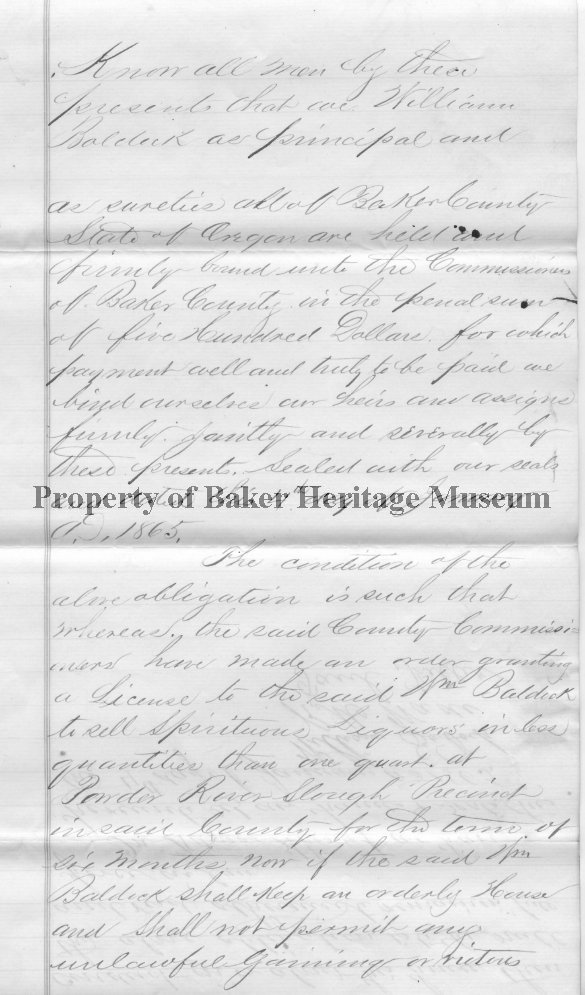 Know all men by these
presents that we William
Baldick as principal and
as sureties all of Baker County
State of Oregon are held and
firmly bound unto the Commissioners
of Baker County in the penal sum
of five Hundred Dollars. for which
payment well and truly to be paid we
bind ourselves our heirs and assigns
firmly. jointly and severally by
these presents. Sealed with our seals
Property of Baker Heritage Museum
A.D. 1865.
The condition of the
above obligation is such that
whereas, the said County Commissi-
oners have made an order granting
a License to the said Wm Baldick
to sell Spirituous Liquors in less
quantities than one quart. at
Powder River Slough Precinct
in said County for the term of
six months now if the said Wm
Baldick shall keep an orderly House
and shall not permit any
unlawful Gaming or